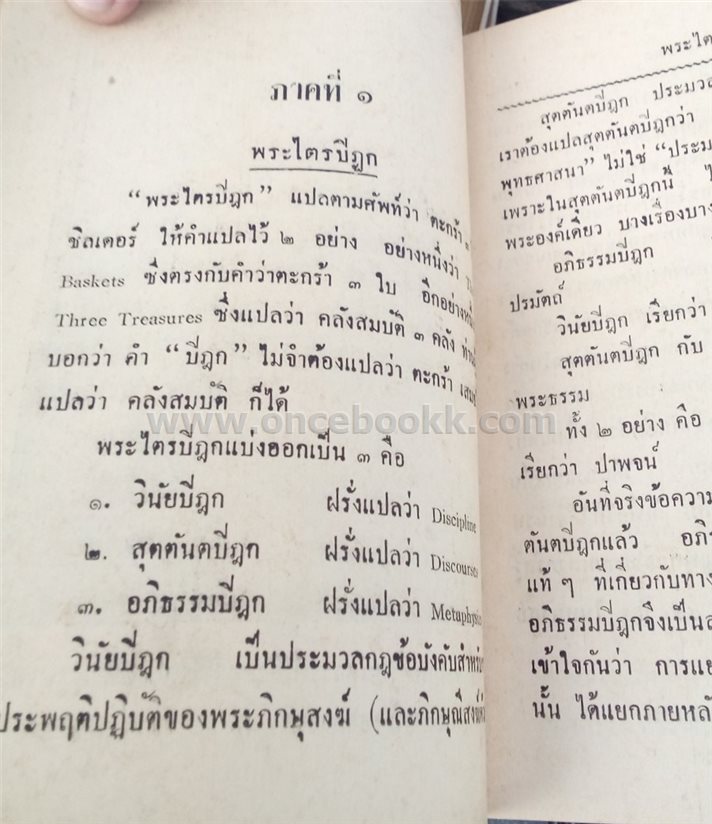 ภาคที่ ๑
พระไตรปิฎก
“พระไตรปิฎก” แปลตามศัพท์ว่า ตะกร้า ๓
ชิลเดอร์ ให้คำแปลไว้ ๒ อย่าง อย่างหนึ่งว่า
Baskets ซึ่งตรงกับคำว่าตะกร้า ๓ ใบ อีกอย่าง
Three Treasures ซึ่งแปลว่า คลังสมบัติ ๓ คลัง
บอกว่า คำ “ปิฎก” ไม่จำต้องแปลว่า ตะกร้า
แปลว่า คลังสมบัติ ก็ได้
www.oncebookk.com
พระไตรปิฎกแบ่งออกเป็น ๓ คือ
๑. วินัยปิฎก ฝรั่งแปลว่า Discipline
๒. สุตตันตปิฎก ฝรั่งแปลว่า Discourses
๓. อภิธรรมปิฎก ฝรั่งแปลว่า
วินัยปิฎก เป็นประมวลกฎข้อบังคับ
ประพฤติปฏิบัติของพระภิกษุสงฆ์
สุตตันตปิฎก
เราต้องแปลสุตตันตปิฎกว่า
พุทธศาสนา” ไม่ใช่
เพราะในสุตตันตปิฎกนี้
พระองค์เดียว บางเรื่อง
อภิธรรมปิฎก
ปรมัตถ์
วินัยปิฎก เรียกว่า
สุตตันตปิฎก กับ
พระธรรม
ทั้ง ๒ อย่าง คือ
เรียกว่า ปาพจน์
อันที่จริงข้อความ
ตันตปิฎกแล้ว
แท้ ๆ ที่เกี่ยวกับทาง
อภิธรรมปิฎกจึงเป็น
เข้าใจกันว่า
นั้น ได้แยกภายหลัง